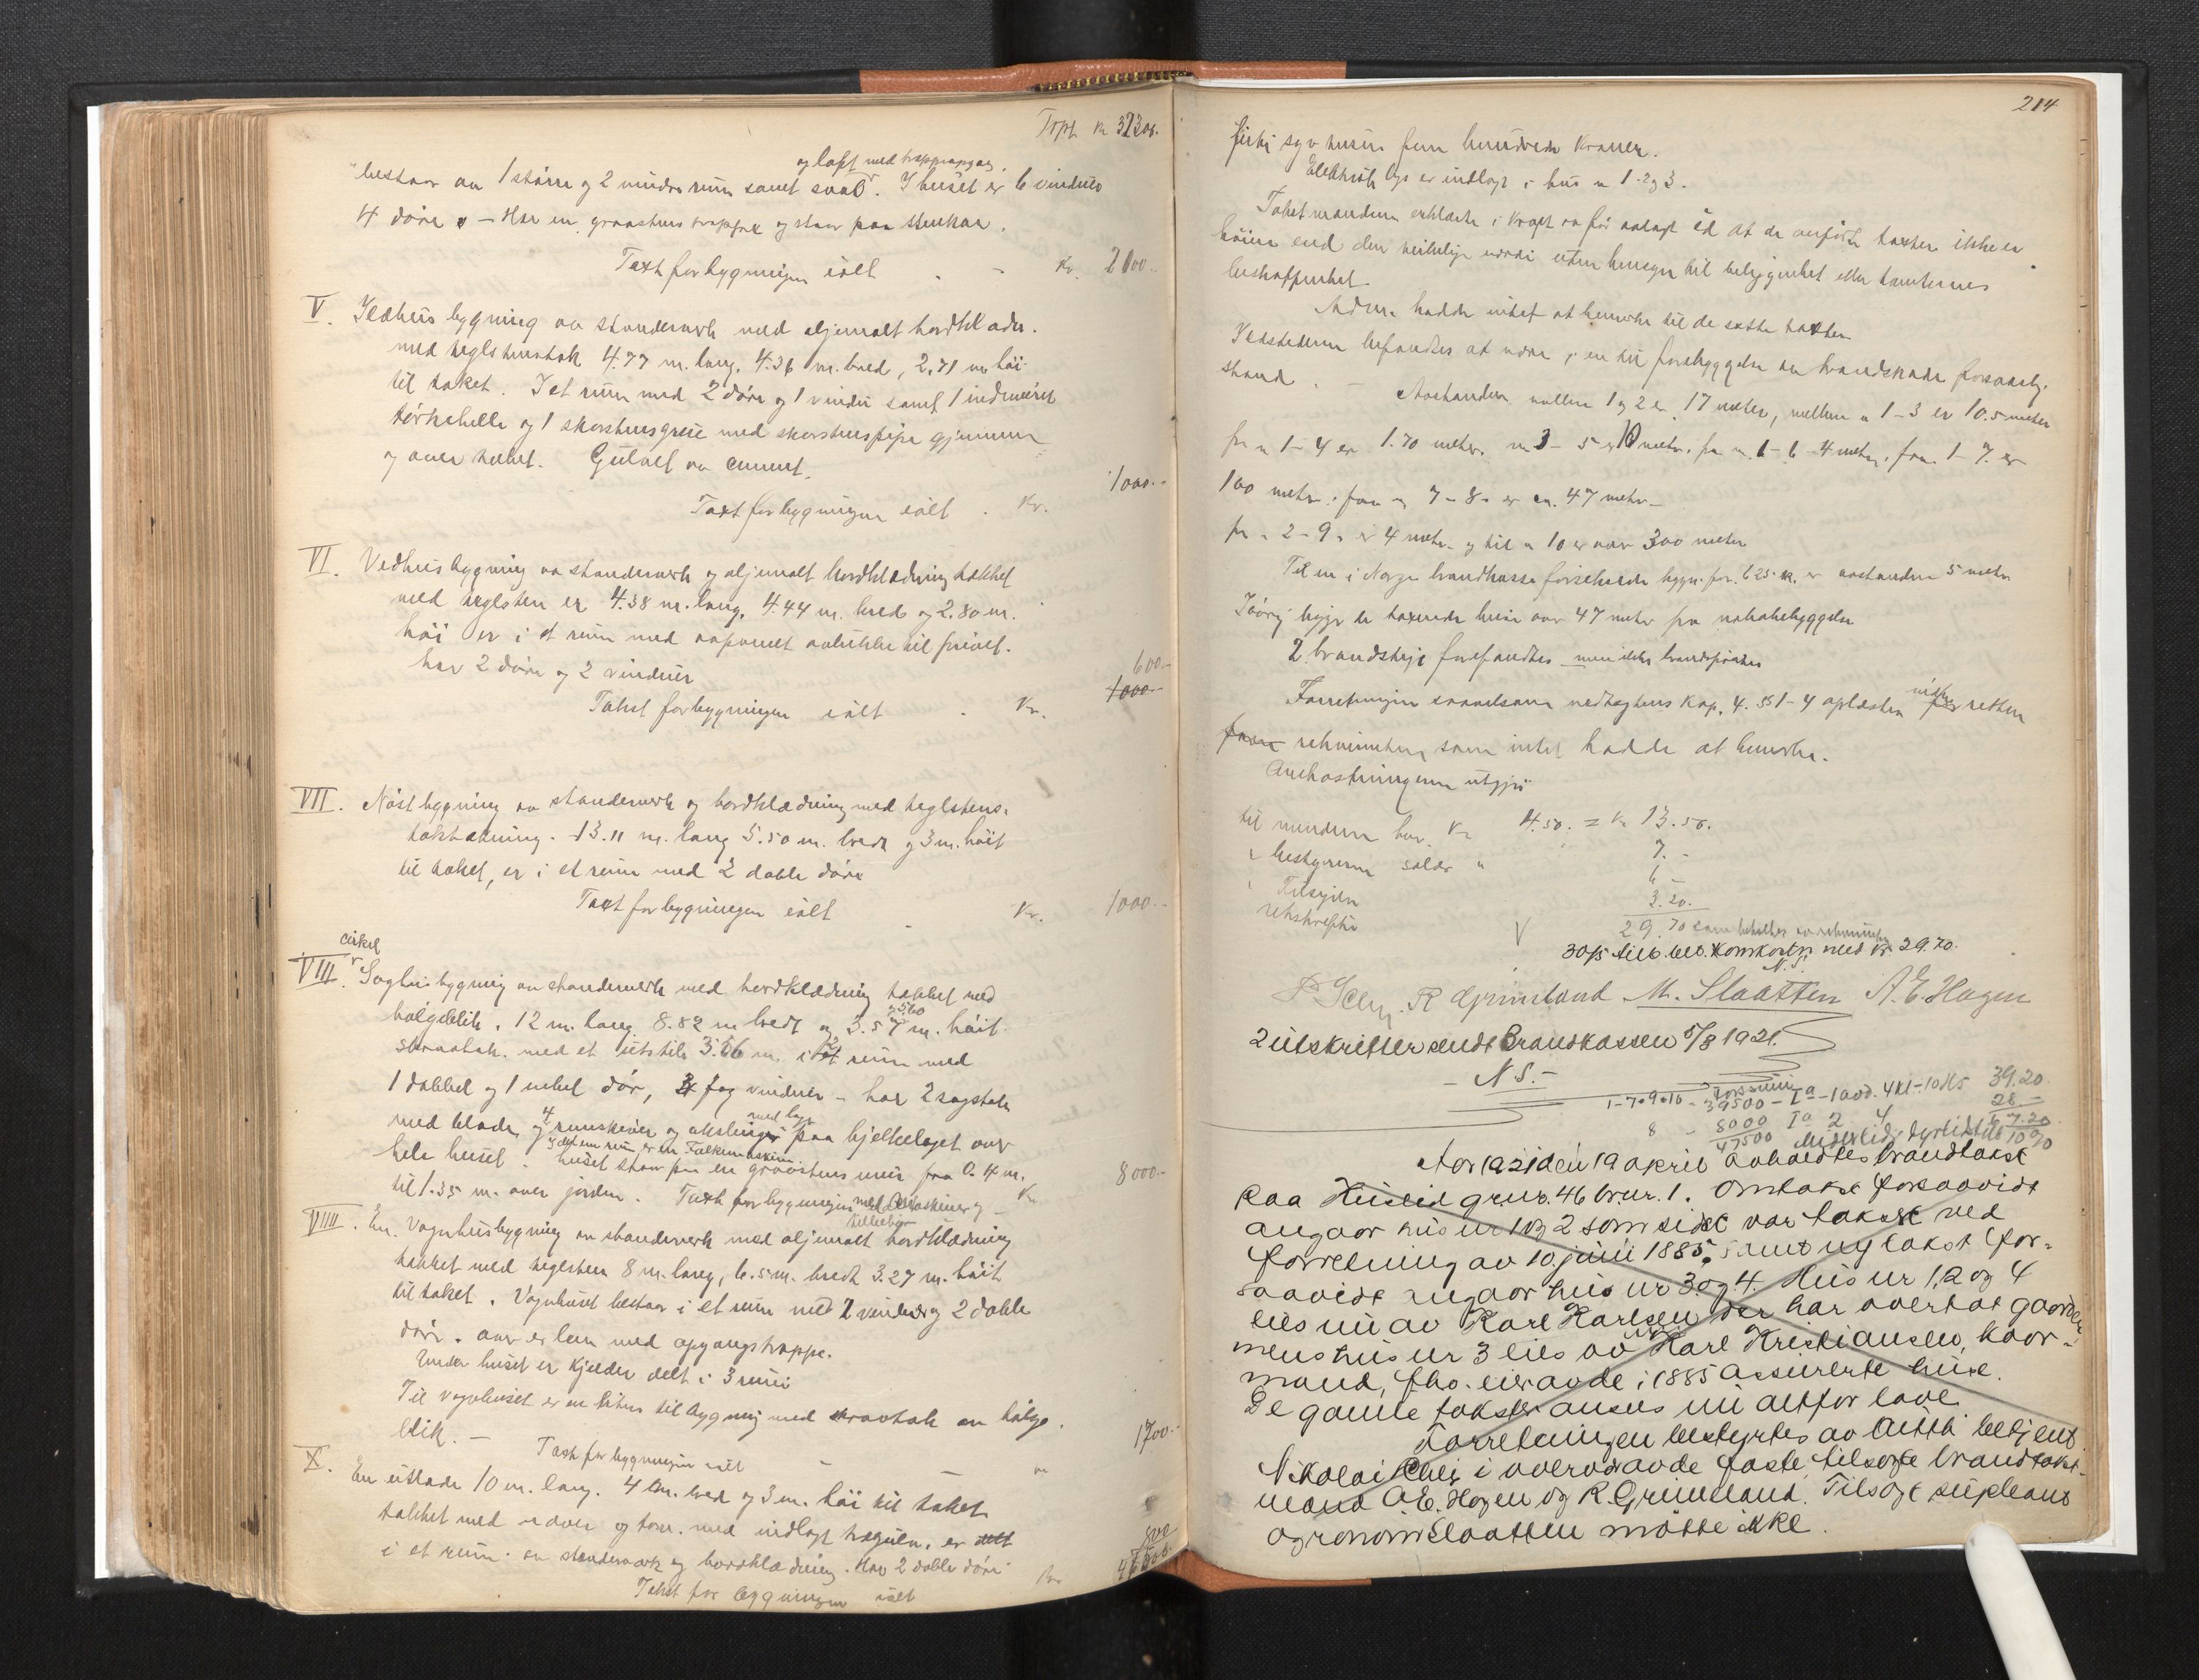 Trpt. kr 32200.
og loft med trappopgang.
bestaar av 1 större og 2 mindre rum samt sval. I huset er 6 vinduer
4 döre - Har en graastens trappe og staar paa stenkar.
Taxt for bygningen ialt - - Kr. 2000.-
V. Ildhus bygning av standerverk med oljemalt bordklæder.
med teglstenstak 4.77 m. lang, 4.36 m. bred, 2,71 m. höi
til taket. I et rum med 2 döre og 1 vindu samt 1 indmuret
törkehelle og 1 skorstensgrue med skorstenspipe gjennem
og over taket. Gulvet av cement.
Taxt for bygningen ialt . Kr. 1000.-
VI. Vedhus bygning av standerverk og oljemalt bordklædning tækket
med teglsten er 4.38 m. lang, 4.44 m. bred og 2.80 m.
höi er i et rum med avpanelt avlukke til privet.
har 2 döre og 2 vinduer 600.-
Takst for bygningen ialt . Kr. 1000.-
VII. Nöst bygning av standerverk og bordklædning med teglstens-
taktækning. 13.11 m. lang 5.50 m. bredt og 3 m. höit
til taket, er i et rum med 2 doble döre
Taxt for bygningen ialt . Kr. 1000.-
cirkel
VIII. Saghus bygning av standerverk med bordklædning tækket med
bölgeblik. 12 m. lang 8.82 m bredt og 3.57 m. höit
skraatak. med et utstik 3.66 m. i et rum med
1 dobbel og 1 enkel dör, 3 fag vinduer - har 2 sagstole
med lager
med blade, og 4 remskiver og akslinger paa bjelkelaget over
I det ene rum er en Falkemaskine
hele huset. Huset staar paa en graastens mur fra 0.4 m.
til 1.35 m. over jorden. Taxt for bygningen med maskiner og Kr 8000.-
tilbehør
VIIII. En Vognhusbygning av standerverk med oljemalt bordklædning
tækket med teglsten 8 m. lang, 6.5 m. bredt 3.27 m. höit
til taket. Vognhuset bestaar i et rum med 2 vinduer og 2 doble
döre. over er lem med opgangstrappe.
Under huset er kjelder delt i 3 rum
Til vognhuset er en litus tilbygning med skraatak av bölge-
blik. -
Taxt for bygningen ialt - - kr 1700.-
X. En utlade 10 m. lang. 4 m. bred og 3 m. höi til taket
tækket med næver og torv. med indlagt trægulv. er delt
i et rum. av standerverk og bordklædning. Har 2 doble döre 800
Takst for bygningen ialt Kr 46300.
214
firti syv tusin fem hundrede kroner.
Elektrisk lys er indlagt i hus nr 1-2 og 3.
Takstmændene erklærte i kraft av för avlagt ed at de anförte taxter ikke er
höiere end den virkelige værdi uten hensyn til beliggenhet eller tomternes
beskaffenhet.
Adm. hadde intet at bemerke til de satte taxter
Ildstederne befandtes at være i en til forebyggelse av brandskade forsvarlig
stand. - Avstanden mellem 1 og 2 er 17 meter, mellem n 1-3 er 10.5 meter
fra n 1-4 er 1.70 meter. n 3-5 er 10 meter. fra n. 1-6 - 4 meter. fra 1-7. er
100 meter. fra n 7-8- er ca. 47 meter-
fra n 2-9 er 4 meter og til n 10 er over 300 meter
Til en i Norges brandkasse forsikrede bygn. for 625 kr. er avstanden 5 meter
Iövrig ligger de taxerede huse over 47 meter fra nabobebyggelse
2 brandstiger forefandtes men ikke brandspröiter
Forretningen saavelsom vedtegtens kap. 4. §§ 1-4 oplæstes inden retten
for rekvirenten, som intet hadde at bemerke.
Omkostningerne utgjör
til mændene hver kr 4.50. = kr 13.50.
" bestyreren salær " 7.-
" Tilsyn 6 -
utskrifter 3.20.
29.70 som betaltes av rekvirenten
30/5 tilb. bet. Komkostn. med kr. 29.70.
N.S.
R Grimeland M. Slaatten A. E. Hagen
2 utskrifter sendt Brandkassen 5/8 1921.
- N.S. -
1-7.9.10 - 39500 - Ia - 1 avd. 4 kl - 10 39.20
8 - 8000 Ia 2 4 28.-
47500 67.20
Aar 1921 den 19 april avholdtes brandtakst
paa gr.nr. 46 br.nr. 1. Omtakst forsaavidt
angaar hus nr 1 og 2 som sidst var takstet ved
forretning av 10. juni 1885, samt ny takst for-
saavidt angaar hus nr 3 og 4. Hus nr 1, 2 og 4
eies nu av Karl Karlsen der har overtat gaarden,
mens hus nr 3 eies av Karl Kristiansen, kaar-
mand, fho. eier av de i 1885 assurerte huse.
De gamle takster ansees nu altfor lave
Forretningen bestyrtes av lensm. betjent
Nikolai i overvær av de faste tilsagte brandtakst-
mænd A.E. Hagen og R. Grimeland. Tilsagt supleant
agronom Slaatten mötte ikke.